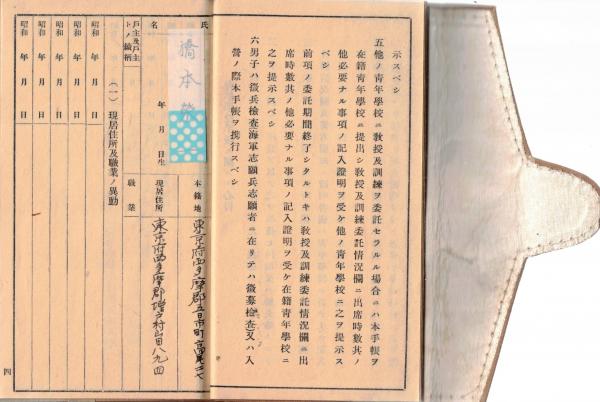 示スベシ
五他ノ青年學校ニ敎授及訓練ヲ委託セラルル場合ニハ本手帳ヲ
在籍青年學校ニ提出シ敎授及訓練委託情況欄ニ出席時數其ノ
他必要ナル事項ノ記入證明ヲ受ケ他ノ青年學校ニ之ヲ提示ス
ベシ
前項ノ委託期間終了シタルトキハ敎授及訓練委託情況欄ニ出
席時數其ノ他必要ナル事項ノ記入證明ヲ受ケ在籍青年學校ニ
之ヲ提示スベシ
六男子ハ徵兵檢査海軍志願兵志願者ニ在リテハ徵募檢査又ハ入
營ノ際本手帳ヲ携行スベシ
本籍地 東京府西多摩郡五日市町
現居住所 東京府西多摩郡增戶村山田八九四
氏名 橋本
年 月 日生
職業
戶主及戶主トノ續柄
(一) 現居住所及職業ノ異動
昭和 年 月 日
昭和 年 月 日
昭和 年 月 日
昭和 年 月 日
昭和 年 月 日
四